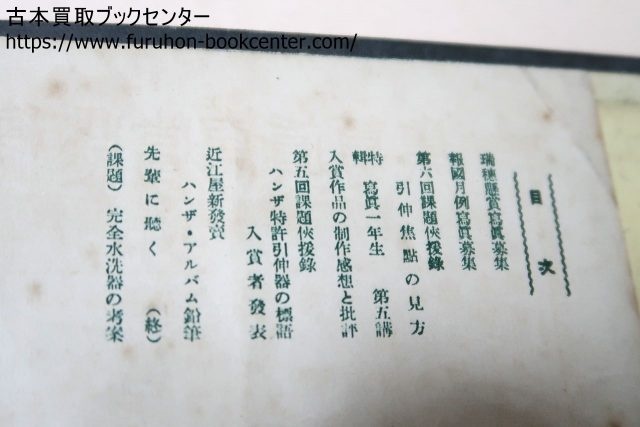 古本買取ブックセンター
https://www.furuhon-bookcenter.com/
目次
瑞穗懸賞寫眞募集
報國月例寫眞募集
第六回課題俠援錄
引伸焦點の見方
特輯 寫眞一年生 第五講
入賞作品の制作感想と批評
第五回課題俠援錄
ハンザ特許引伸器の標語
入賞者發表
近江屋新發賣
ハンザ・アルバム鉛筆
先輩に聽く (終)
(課題) 完全水洗器の考案